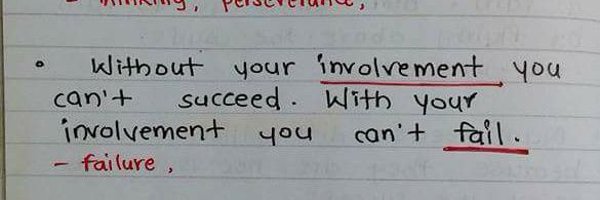 - thinking, perseverance,
• Without your involvement you
can't succeed. With your
involvement you can't fail.
- failure,